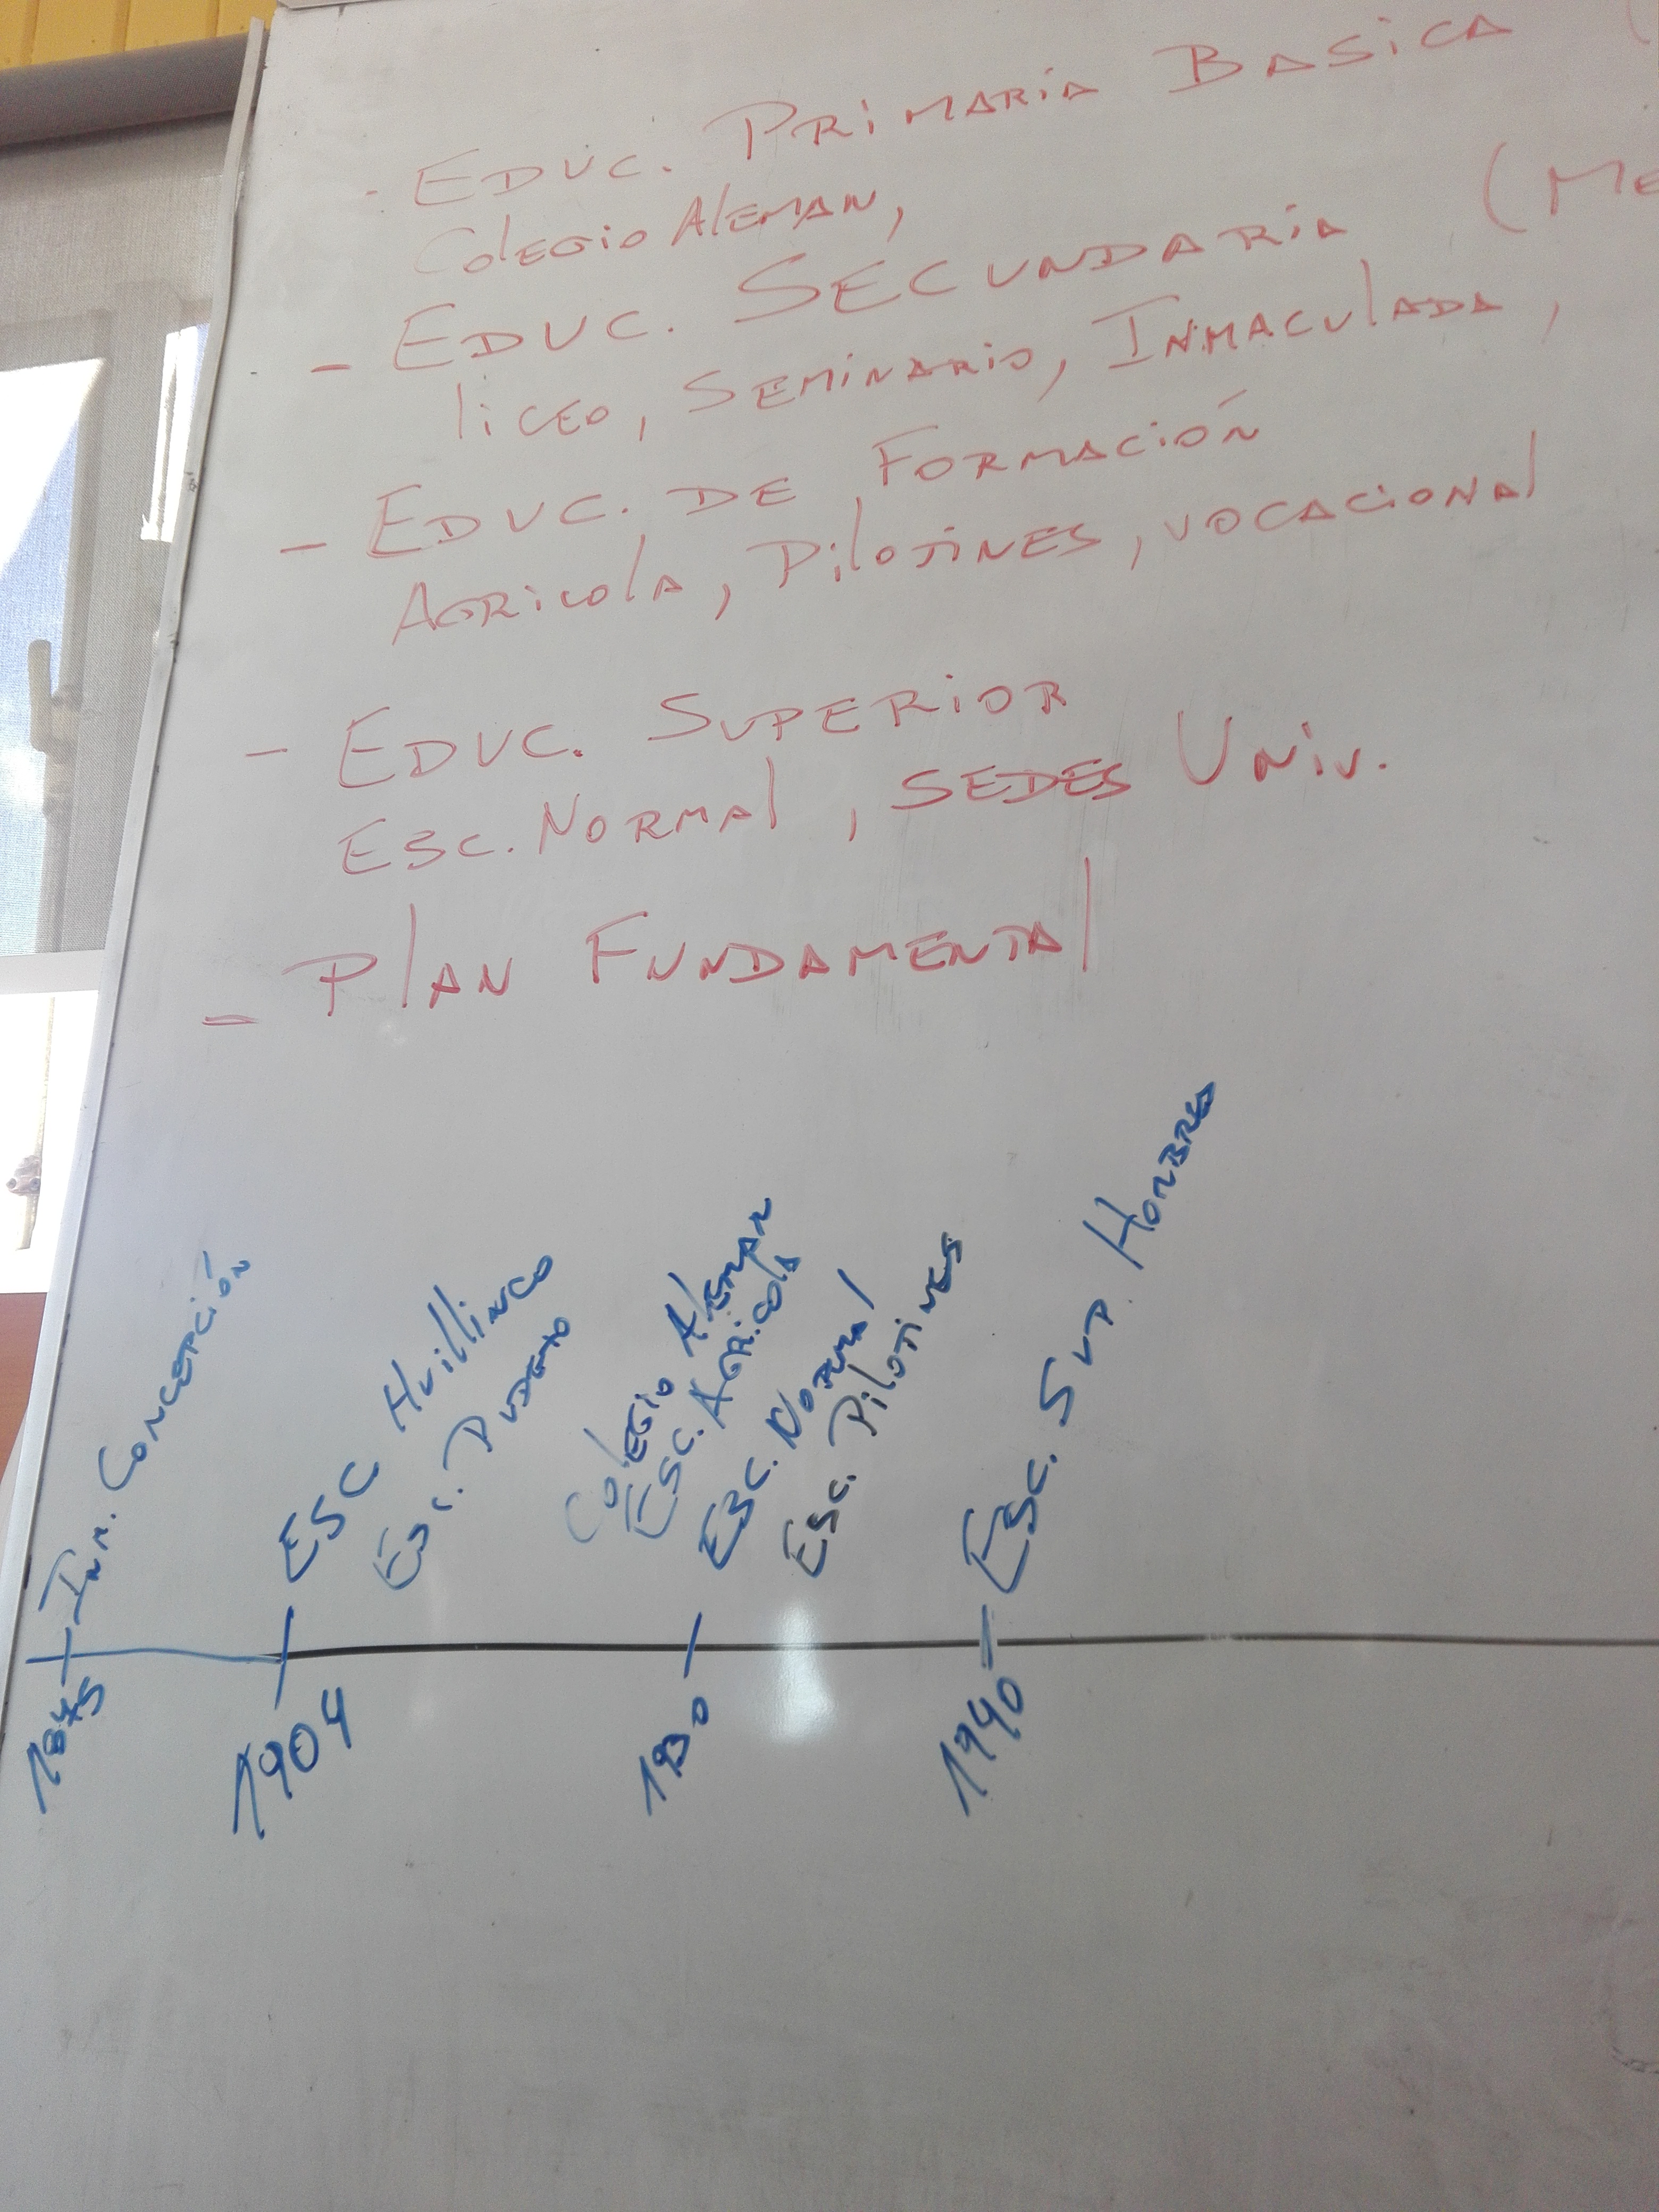 - EDUC. PRIMARIA BASICA (
COLEGIO ALEMAN,
- EDUC. SECUNDARIA (ME
LICEO, SEMINARIO, INMACULADA,
- EDUC. DE FORMACIÓN
AGRICOLA, PILOTINES, VOCACIONAL
- EDUC. SUPERIOR
ESC. NORMAL, SEDES UNIV.
- PLAN FUNDAMENTAL
INM. CONCEPCIÓN
ESC HUILLINCO
ESC. PUDETO
COLEGIO ALEMAN
ESC. AGRICOLA
ESC. NORMAL
ESC. PILOTINES
ESC. SUP. HOMBRES
1904
1930
1940